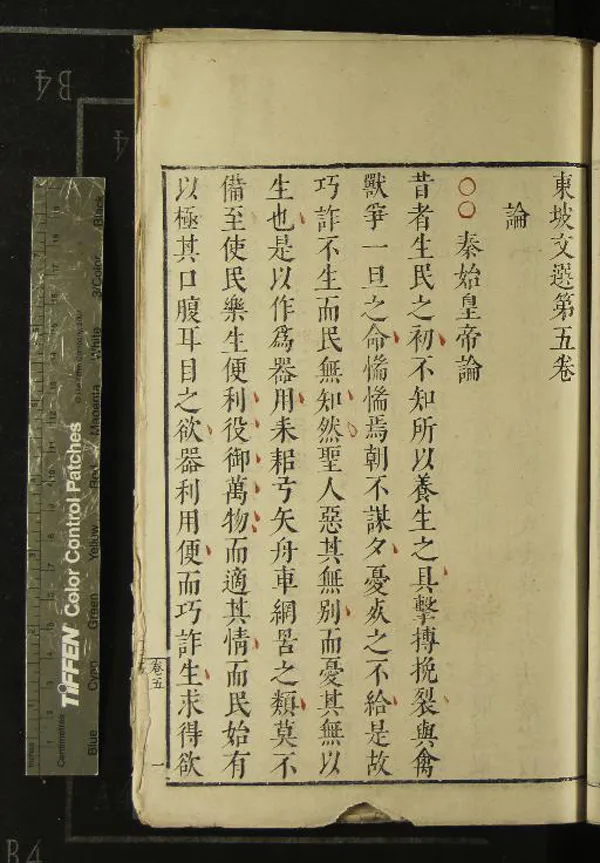 東坡文選第五卷
論
○○秦始皇帝論
昔者生民之初不知所以養生之具擊搏挽裂與禽
獸爭一旦之命惴惴焉朝不謀夕憂死之不給是故
巧詐不生而民無知然聖人惡其無別而憂其無以
生也是以作爲器用耒耜弓矢舟車網罟之類莫不
備至使民樂生便利役御萬物而適其情而民始有
以極其口腹耳目之欲器利用便而巧詐生求得欲
卷五
一
B4
4
B4
TIFFEN Color Control Patches
Blue Cyan Green Yellow Red Magenta White 3/Color Black
Inches
Centimetres